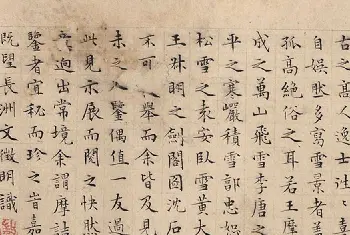 古之高人逸士
自娛然多寫雪景者
孤高絕俗之耳若王摩
成之萬山飛雪李唐之
平之寒巖積雪郭忠恕
松雪之袁安臥雪黃大
王叔明之劍閣圖沈石
不可舉而余皆及見
未之鑒偶值一友過
此見示展而閱之恍然
迥出常境余謂摩詰
鑒者宜秘而珍之旹嘉
既望長洲文徵明識